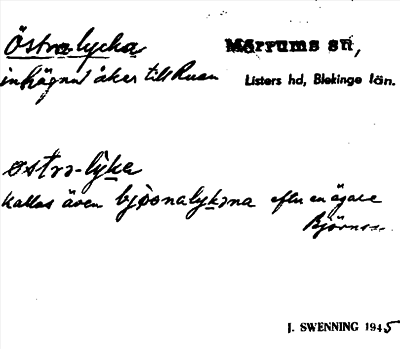 Östralycka
Mörrums sn,
inhägnad åker till Ruan
Listers hd, Blekinge län.
østrə-lỳkə
kallas även bjöənalykəna efter en ägare
Björns
J. SWENNING 1945